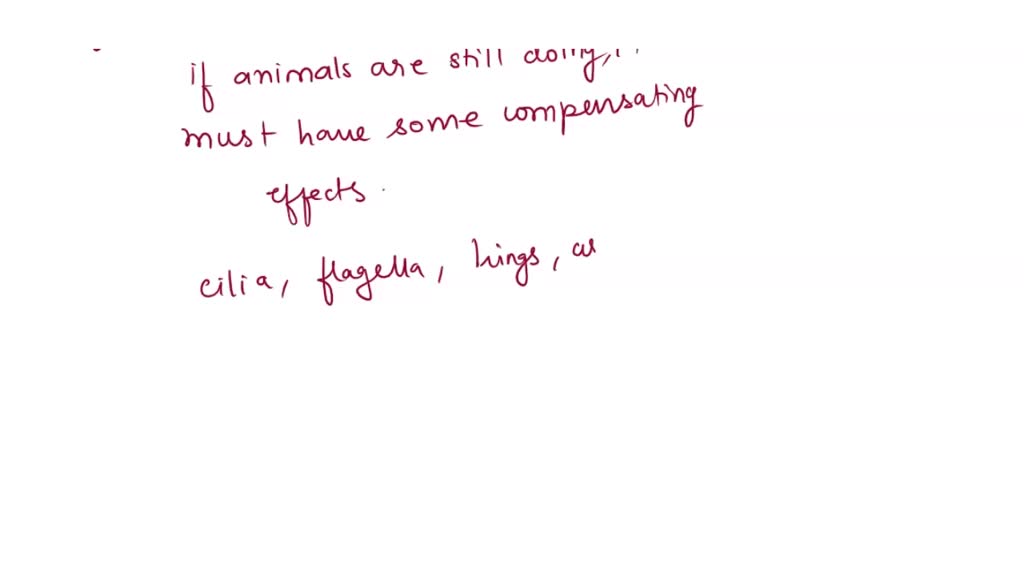 if animals are still doing,
must have some compensating
effects.
cilia, flagella, hings, as